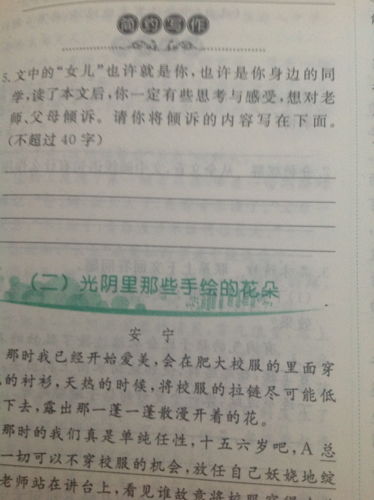 简约写作
5.文中的“女儿”也许就是你,也许是你身边的同
学,读了本文后,你一定有些思考与感受,想对老
师、父母倾诉。请你将倾诉的内容写在下面。
(不超过40字)
(二)光阴里那些手绘的花朵
安 宁
那时我已经开始爱美,会在肥大校服的里面穿
的衬衫,天热的时候,将校服的拉链尽可能低
下去,露出那一蓬一蓬散漫开着的花。
那时的我们真是单纯任性,十五六岁吧,A 总
一切可以不穿校服的机会,放任自己妖娆地绽
老师站在讲台上,看见谁故意将校服